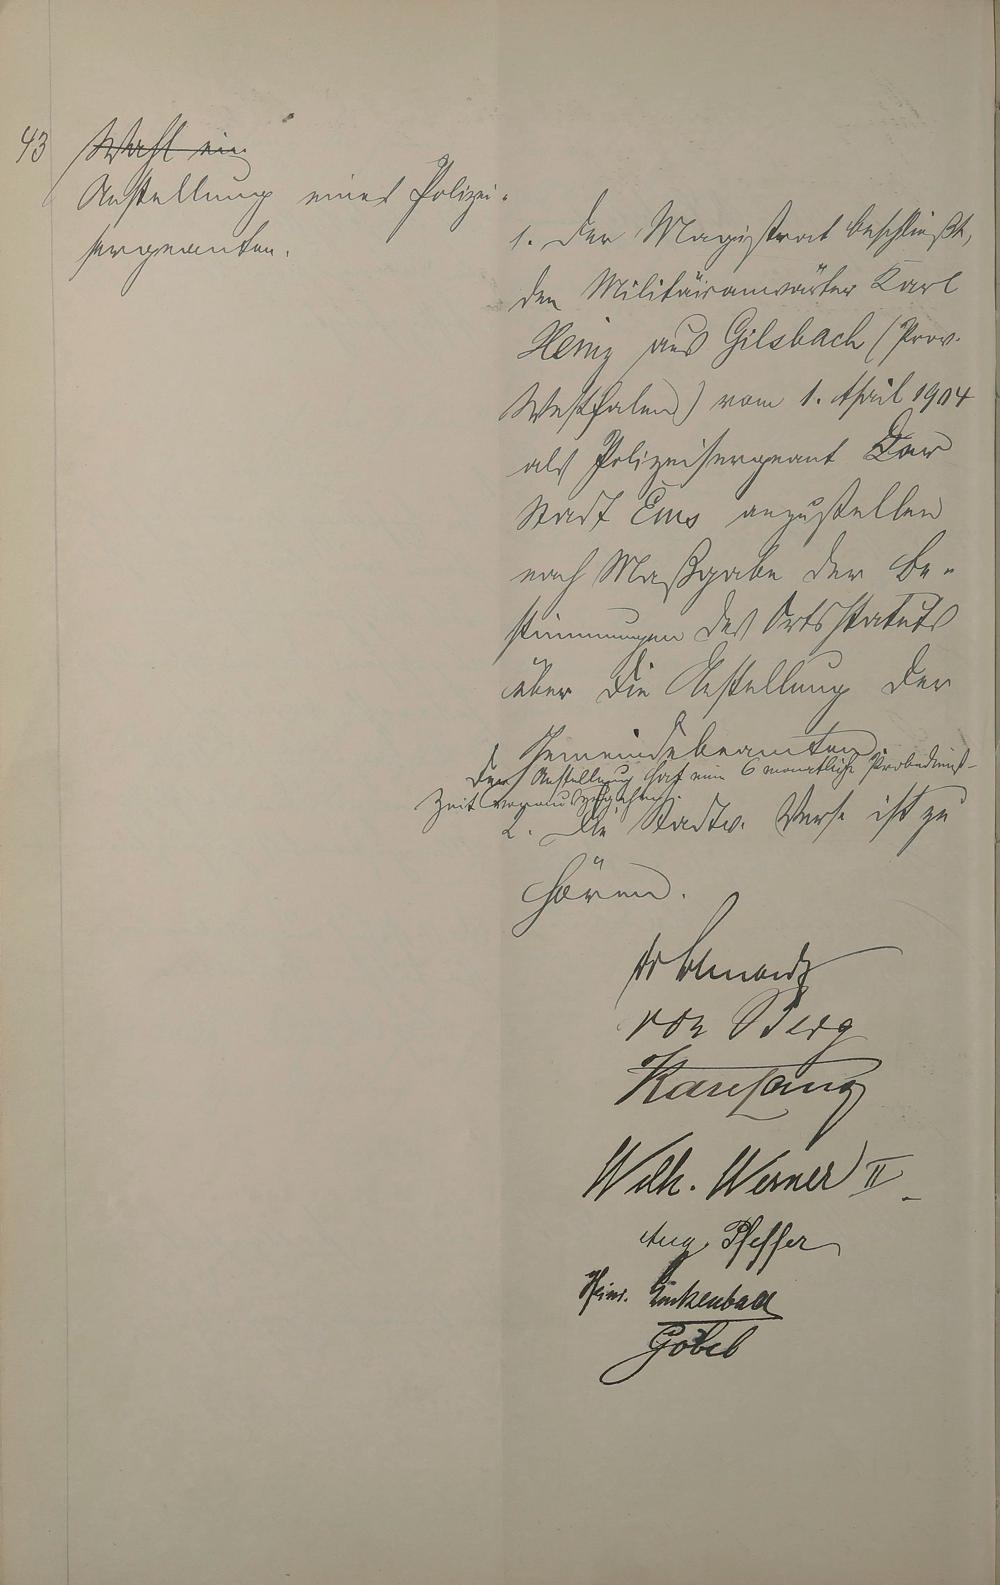 43
Wahl ein
Anstellung eines Polizei-
sergeanten.
1. Der Magistrat beschließt,
den Militäranwärter Karl
Heinz aus Gilsbach (Prov.
Westfalen) vom 1. April 1904
als Polizeisergeant Der
Stadt Ems anzustellen
nach Maßgabe der Be-
stimmungen des Ortsstatuts
über die Anstellung der
Gemeindebeamten.
Der Anstellung hat eine 6 monatliche Probedienst-
zeit vorauszugehen.
2. Die Stadtv. Vers. ist zu
hören.
von Berg
Wilh. Werner II
Aug. Pfeffer
Heinr. Linkenbach
Göbel